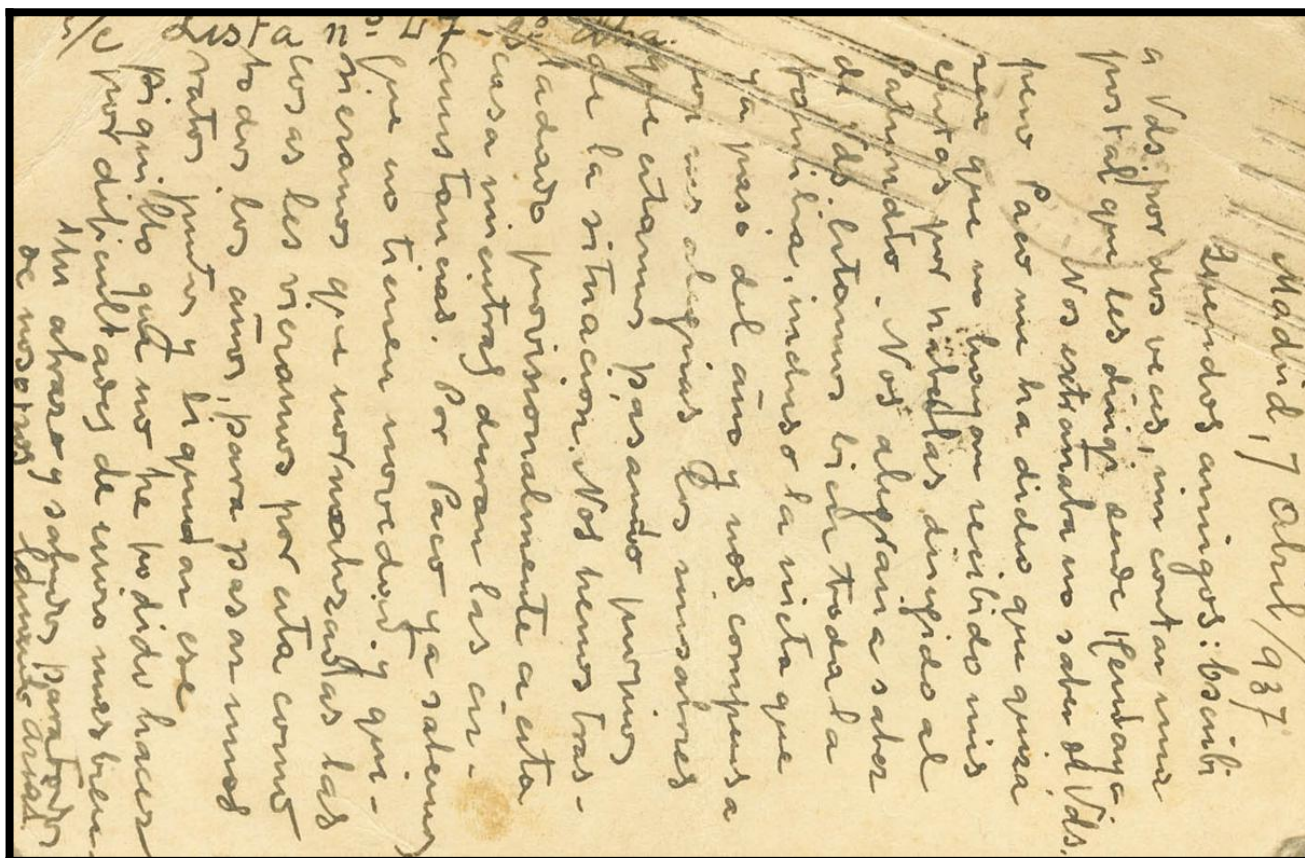 Madrid, 7 Abril/937
Queridos amigos: Escribi
a Vds. por dos veces, sin contar una
postal que les dirigi desde Hendaya
Nos extrañaba no saber de Vds.
pero Paco me ha dicho que quizá
sea que no hayan recibido mis
cartas por habérlas dirigido al
Patronato. Nos alegraria saber
de Vds. Estamos bien toda la
familia, incluso la nieta que
ya pasa del año y nos compensa
con sus alegrias los sinsabores
que estamos pasando
de la situacion. Nos hemos tras-
ladado provisionalmente a esta
casa mientras duran las cir-
cunstancias. Por Paco ya sabemos
que no tienen novedad y qui-
sieramos que normalizadas las
cosas les vieramos por esta como
todos los años, para pasar unos
ratos juntos y liquidar ese
piquillo que no he podido hacer
por dificultades de envio mas bien.
Un abrazo y saludos para todos
de nosotros Eduardo
s/c Lista nº 47 - 2º